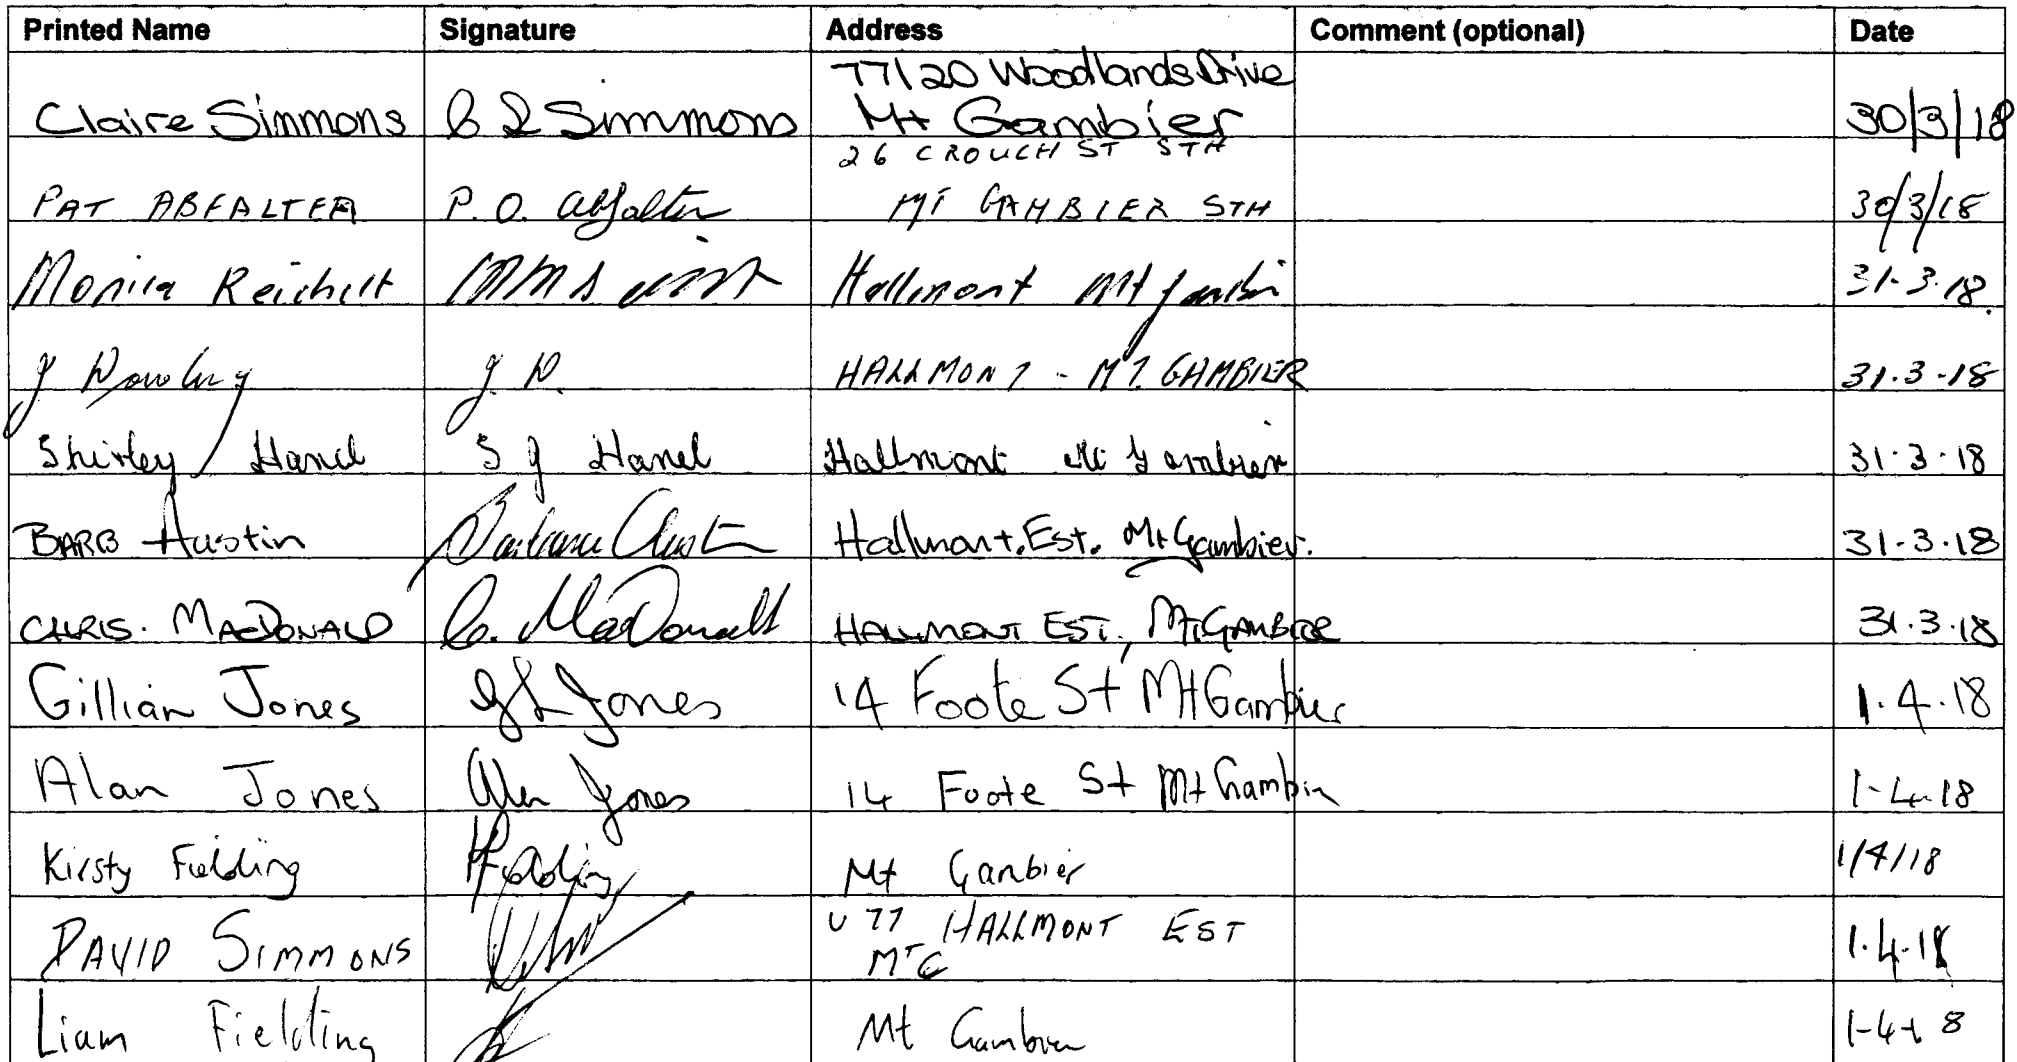 Printed Name Signature Address Comment (optional) Date
77/20 Woodlands Drive
Claire Simmons C L Simmons Mt Gambier 30/3/18
26 CROUCH ST STH
PAT ABFALTER P. O. Abfalter MT GAMBIER STH 30/3/18
Monica Reichelt Hallmont Mt Gambier 31-3-18
J Dowling J. D. HALLMONT - MT. GAMBIER 31.3-18
Shirley Hanel S J Hanel Hallmont Mt Gambier 31.3.18
BARB Austin Barbara Austin Hallmont. Est. Mt Gambier. 31-3-18
CHRIS. MACDONALD C. MacDonald HALLMONT EST, MT GAMBIER 31.3.18
Gillian Jones G L Jones 14 Foote St Mt Gambier 1.4.18
Alan Jones Alan Jones 14 Foote St Mt Gambier 1-4-18
Kirsty Fielding KFielding Mt Gambier 1/4/18
U 77 HALLMONT EST
DAVID SIMMONS MTG 1.4.18
Liam Fielding Mt Gambier 1-4-18